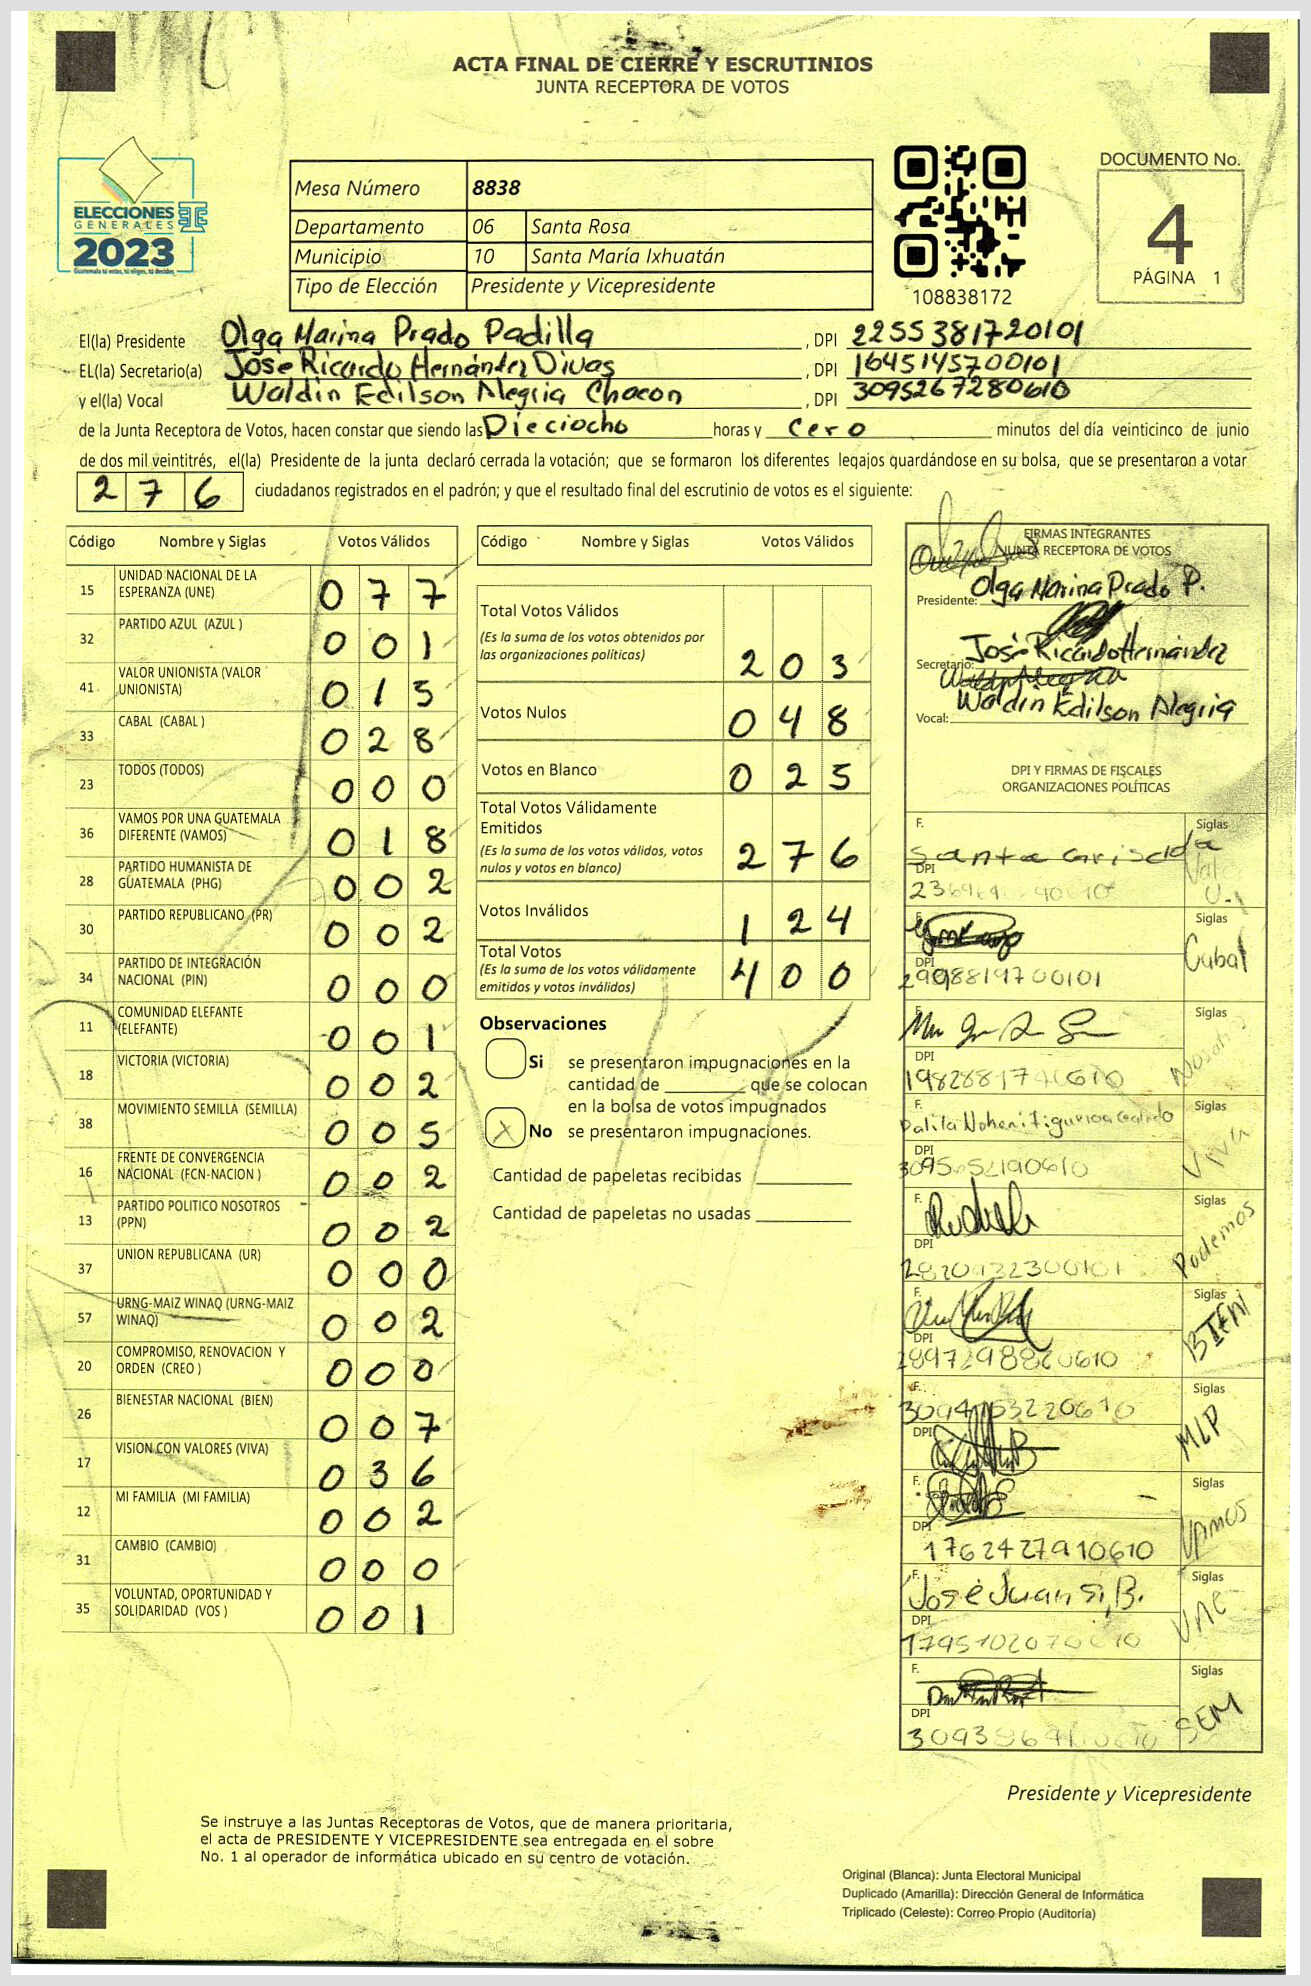 ACTA FINAL DE CIERRE Y ESCRUTINIOS
JUNTA RECEPTORA DE VOTOS
ELECCIONES
GENERALES
2023
Guatemala tú votas, tú eliges, tú decides
Mesa Número 8838
Departamento 06 Santa Rosa
Municipio 10 Santa María Ixhuatán
Tipo de Elección Presidente y Vicepresidente
108838172
DOCUMENTO No.
4
PÁGINA 1
El(la) Presidente Olga Marina Prado Padilla, DPI 2255381720101
EL(la) Secretario(a) Jose Ricardo Hernández Divas, DPI 1645145700101
y el(la) Vocal Waldin Edilson Alegria Chacon, DPI 3095267280610
de la Junta Receptora de Votos, hacen constar que siendo las Dieciocho horas y cero minutos del día veinticinco de junio
de dos mil veintitrés, el(la) Presidente de la junta declaró cerrada la votación; que se formaron los diferentes legajos guardándose en su bolsa, que se presentaron a votar
276 ciudadanos registrados en el padrón; y que el resultado final del escrutinio de votos es el siguiente:
Código Nombre y Siglas Votos Válidos
15 UNIDAD NACIONAL DE LA ESPERANZA (UNE) 077
32 PARTIDO AZUL (AZUL ) 001
41 VALOR UNIONISTA (VALOR UNIONISTA) 015
33 CABAL (CABAL ) 028
23 TODOS (TODOS) 000
36 VAMOS POR UNA GUATEMALA DIFERENTE (VAMOS) 018
28 PARTIDO HUMANISTA DE GUATEMALA (PHG) 002
30 PARTIDO REPUBLICANO (PR) 002
34 PARTIDO DE INTEGRACIÓN NACIONAL (PIN) 000
11 COMUNIDAD ELEFANTE (ELEFANTE) 001
18 VICTORIA (VICTORIA) 002
38 MOVIMIENTO SEMILLA (SEMILLA) 005
16 FRENTE DE CONVERGENCIA NACIONAL (FCN-NACION ) 002
13 PARTIDO POLITICO NOSOTROS (PPN) 002
37 UNION REPUBLICANA (UR) 000
57 URNG-MAIZ WINAQ (URNG-MAIZ WINAQ) 002
20 COMPROMISO, RENOVACION Y ORDEN (CREO ) 000
26 BIENESTAR NACIONAL (BIEN) 007
17 VISION CON VALORES (VIVA) 036
12 MI FAMILIA (MI FAMILIA) 002
31 CAMBIO (CAMBIO) 000
35 VOLUNTAD, OPORTUNIDAD Y SOLIDARIDAD (VOS ) 001
Código Nombre y Siglas Votos Válidos
Total Votos Válidos
(Es la suma de los votos obtenidos por las organizaciones políticas) 203
Votos Nulos 048
Votos en Blanco 025
Total Votos Válidamente Emitidos
(Es la suma de los votos válidos, votos nulos y votos en blanco) 276
Votos Inválidos 124
Total Votos
(Es la suma de los votos válidamente emitidos y votos inválidos) 400
Observaciones
Si se presentaron impugnaciones en la
cantidad de ________ que se colocan
en la bolsa de votos impugnados
X No se presentaron impugnaciones.
Cantidad de papeletas recibidas
Cantidad de papeletas no usadas
FIRMAS INTEGRANTES
JUNTA RECEPTORA DE VOTOS
Presidente: Olga Marina Prado P.
Secretario: José Ricardo Hernández
Vocal: Waldin Edilson Alegria
DPI Y FIRMAS DE FISCALES
ORGANIZACIONES POLÍTICAS
F. Santa Griselda Siglas
DPI
F. Siglas Cabal
DPI 2998819700101
F. Siglas
DPI
F. Siglas Viva
DPI
F. Siglas Podemos
DPI
F. Siglas BIEN
DPI
F. Siglas MLP
DPI
F. Siglas VAMOS
DPI 1762427910610
F. José Juan Si, B. Siglas UNE
DPI
F. Siglas SEM
DPI
Presidente y Vicepresidente
Se instruye a las Juntas Receptoras de Votos, que de manera prioritaria,
el acta de PRESIDENTE Y VICEPRESIDENTE sea entregada en el sobre
No. 1 al operador de informática ubicado en su centro de votación.
Original (Blanca): Junta Electoral Municipal
Duplicado (Amarilla): Dirección General de Informática
Triplicado (Celeste): Correo Propio (Auditoría)